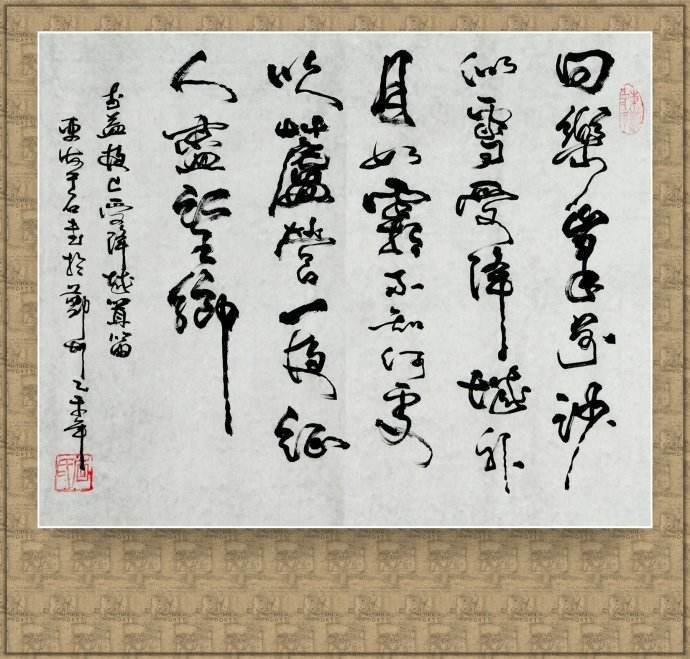 回樂峯前沙
似雪受降城外
月如霜不知何處
吹蘆管一夜征
人盡望鄉
李益夜上受降城聞笛
東海石書於鄭州乙未年